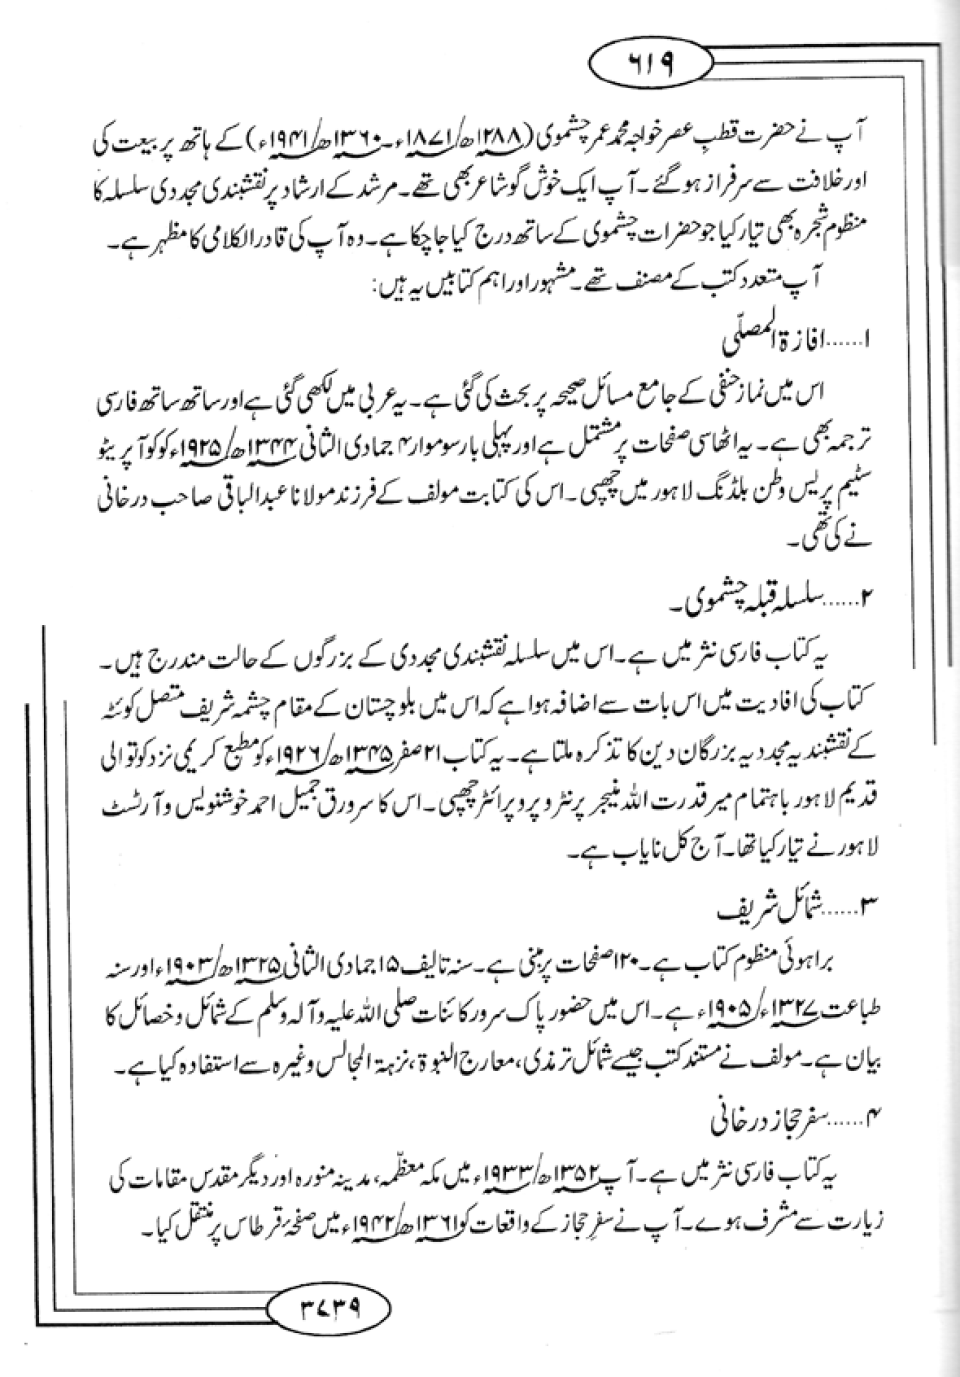 ۶۱۹
آپ نے حضرت قطبِ عصر خواجہ محمد عمر چشموی (۱۲۸۸ھ/۱۸۷۱ء۔۱۳۶۰ھ/۱۹۴۱ء) کے ہاتھ پر بیعت کی
اور خلافت سے سرفراز ہو گئے۔ آپ ایک خوش گو شاعر بھی تھے۔ مرشد کے ارشاد پر نقشبندی مجددی سلسلہ کا
منظوم شجرہ بھی تیار کیا جو حضرات چشموی کے ساتھ درج کیا جا چکا ہے۔ وہ آپ کی قادر الکلامی کا مظہر ہے۔
آپ متعدد کتب کے مصنف تھے۔ مشہور اور اہم کتابیں یہ ہیں:
۱......افازۃ المصلّی
اس میں نماز حنفی کے جامع مسائل صحیحہ پر بحث کی گئی ہے۔ یہ عربی میں لکھی گئی ہے اور ساتھ ساتھ فارسی
ترجمہ بھی ہے۔ یہ اٹھاسی صفحات پر مشتمل ہے اور پہلی بار سوموار ۴ جمادی الثانی ۱۳۴۴ھ/۱۹۲۵ء کو کوآپریٹو
سٹیم پریس وطن بلڈنگ لاہور میں چھپی۔ اس کی کتابت مولف کے فرزند مولانا عبدالباقی صاحب درخانی
نے کی تھی۔
۲......سلسلہ قبلہ چشموی۔
یہ کتاب فارسی نثر میں ہے۔ اس میں سلسلہ نقشبندی مجددی کے بزرگوں کے حالت مندرج ہیں۔
کتاب کی افادیت میں اس بات سے اضافہ ہوا ہے کہ اس میں بلوچستان کے مقام چشمہ شریف متصل کوئٹہ
کے نقشبندیہ مجددیہ بزرگان دین کا تذکرہ ملتا ہے۔ یہ کتاب ۲۱ صفر ۱۳۴۵ھ/۱۹۲۶ء کو مطبع کریمی نزد کوتوالی
قدیم لاہور باہتمام میر قدرت اللہ منیجر پرنٹر و پروپرائٹر چھپی۔ اس کا سرورق جمیل احمد خوشنویس و آرٹسٹ
لاہور نے تیار کیا تھا۔ آج کل نایاب ہے۔
۳......شمائل شریف
براہوئی منظوم کتاب ہے۔ ۱۲۰ صفحات پر مبنی ہے۔ سنہ تالیف ۱۵ جمادی الثانی ۱۳۲۵ھ/۱۹۰۳ء اور سنہ
طباعت ۱۳۲۷ء/۱۹۰۵ء ہے۔ اس میں حضور پاک سرور کائنات صلی اللہ علیہ وآلہ وسلم کے شمائل و خصائل کا
بیان ہے۔ مولف نے مستند کتب جیسے شمائل ترمذی، معارج النبوۃ، نزہۃ المجالس وغیرہ سے استفادہ کیا ہے۔
۴......سفر حجاز درخانی
یہ کتاب فارسی نثر میں ہے۔ آپ ۱۳۵۲ھ/۱۹۳۳ء میں مکہ معظّمہ، مدینہ منورہ اور دیگر مقدس مقامات کی
زیارت سے مشرف ہوے۔ آپ نے سفرِ حجاز کے واقعات کو ۱۳۶۱ھ/۱۹۴۲ء میں صفحۂ قرطاس پر منتقل کیا۔
۳۷۳۹